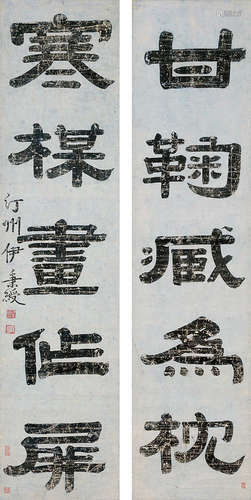 甘鞠臧為枕
寒楳畫作屏
汀州伊秉綬